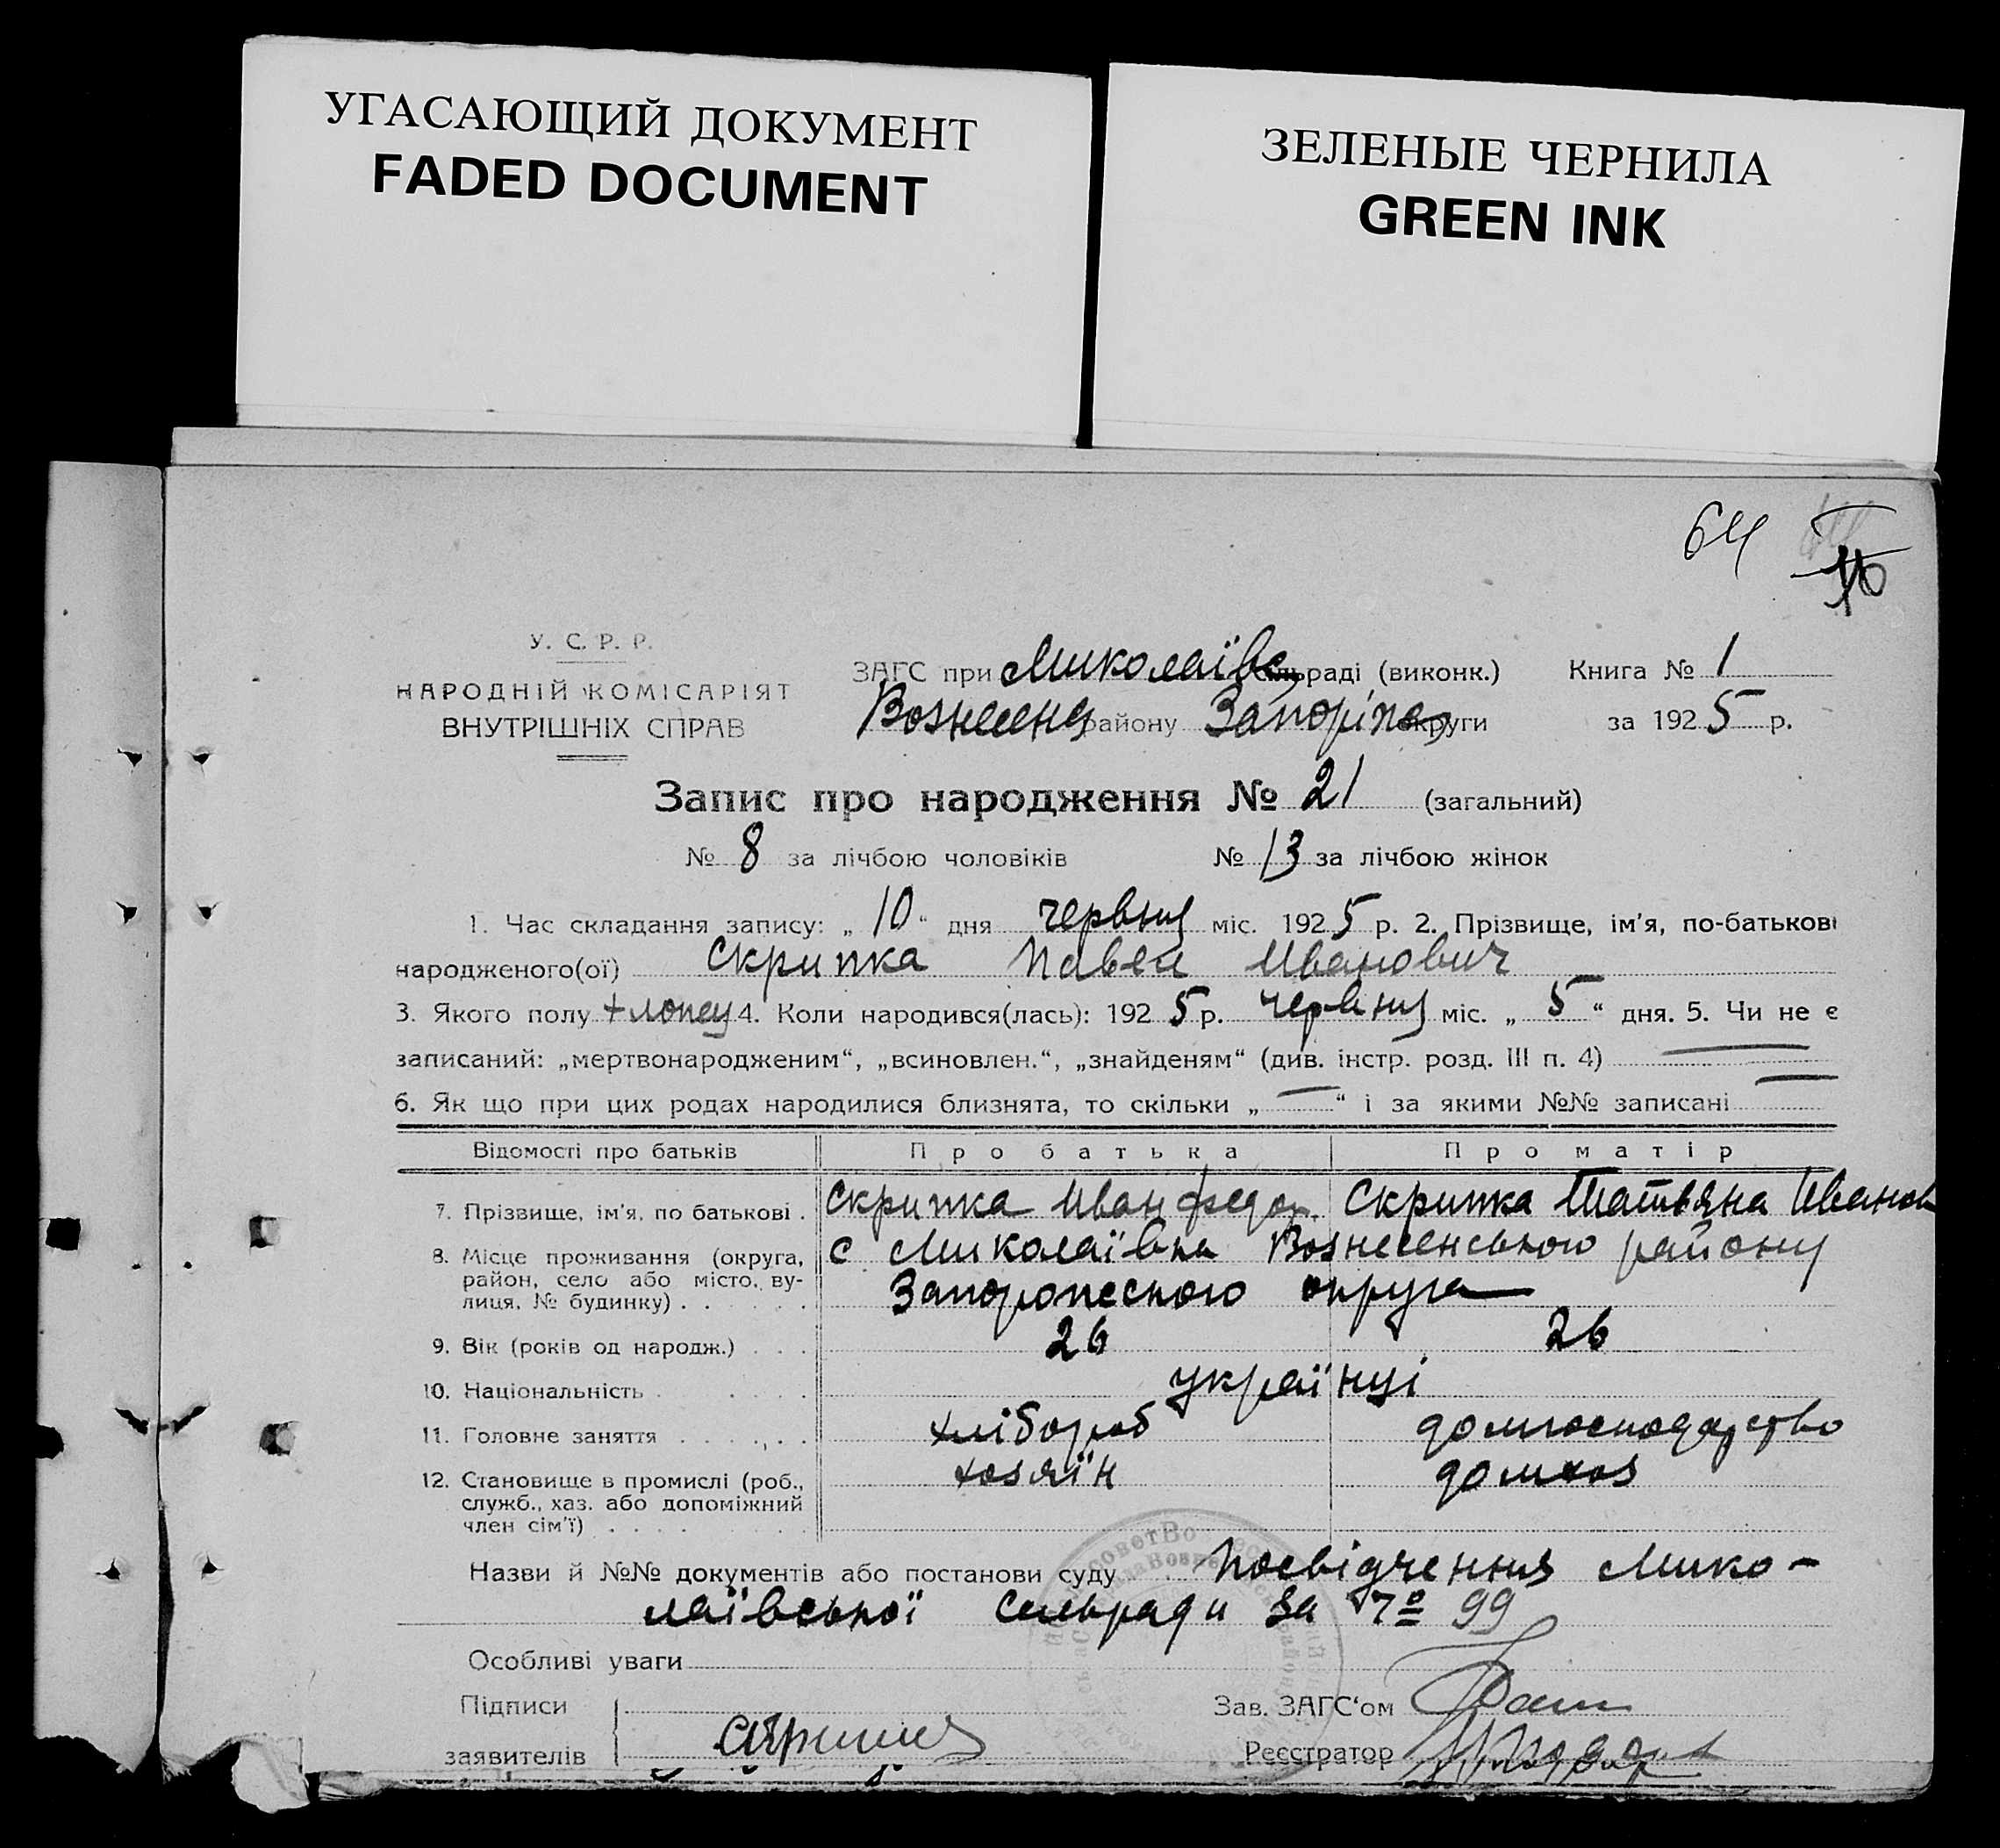 УГАСАЮЩИЙ ДОКУМЕНТ
FADED DOCUMENT
ЗЕЛЕНЫЕ ЧЕРНИЛА
GREEN INK
64
У. С. Р. Р.
НАРОДНІЙ КОМІСАРІЯТ
ВНУТРІШНІХ СПРАВ
ЗАГС при Миколаївс сільраді (виконк.) Книга № 1
Вознесенс району Запоріж округи за 1925 р.
Запис про народження № 21 (загальний)
№ 8 за лічбою чоловіків № 13 за лічбою жінок
1. Час складання запису: „ 10 “ дня червня міс. 1925 р. 2. Прізвище, ім'я, по-батькові
народженого(ої) Скрипка Павел Иванович
3. Якого полу хлопец 4. Коли народився(лась): 1925 р. червня міс. „ 5 “ дня. 5. Чи не є
записаний: „мертвонародженим“, „всиновлен.“, „знайденям“ (див. інстр. розд. III п. 4) —
6. Як що при цих родах народилися близнята, то скільки „ — “ і за якими №№ записані —
Відомості про батьків Про батька Про матір
7. Прізвище, ім'я, по батькові . Скрипка Иван Федор. Скрипка Татьяна Иванов
8. Місце проживання (округа, с Миколаївка Вознесенського району
район, село або місто, ву-
лиця, № будинку) . . . . Запорожского округа
9. Вік (років од народж.) . . . 26 26
10. Національність . . . . . українці
11. Головне заняття . . . . . . хлібороб домгосподарство
12. Становище в промислі (роб., хозяїн домхоз
служб., хаз. або допоміжний
член сім'ї) . . . .
Назви й №№ документів або постанови суду Посвідчення Мико-
лаївської сельради за № 99
Особливі уваги
Підписи
заявителів
Зав. ЗАГС'ом
Реєстратор